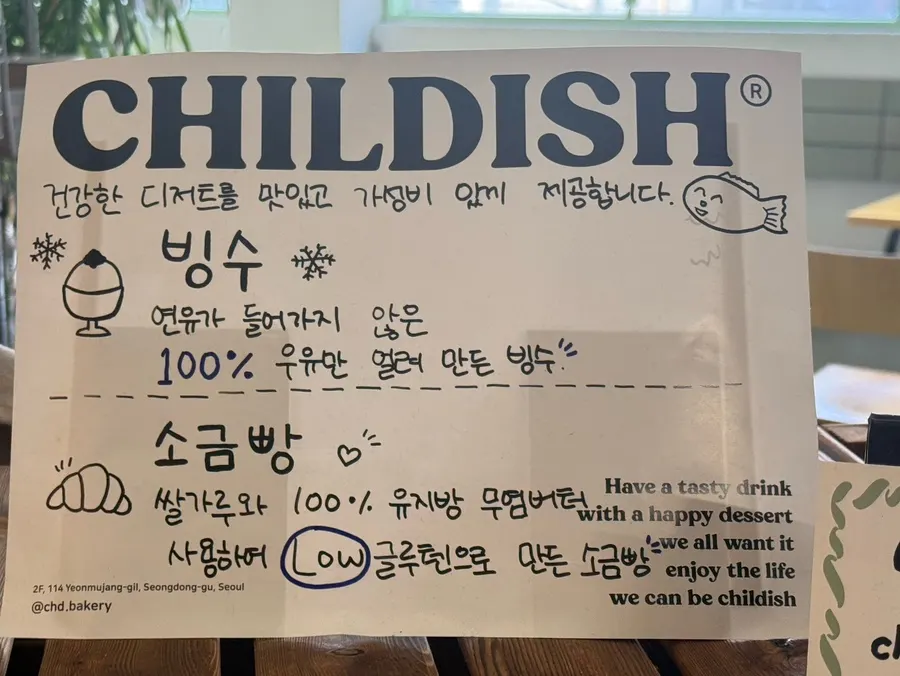 CHILDISH®
건강한 디저트를 맛있고 가성비 있게 제공합니다.
빙수
연유가 들어가지 않은
100% 우유만 얼려 만든 빙수
소금빵
쌀가루와 100% 유지방 무염버터
사용하여 Low 글루텐으로 만든 소금빵
Have a tasty drink
with a happy dessert
we all want it
enjoy the life
we can be childish
2F, 114 Yeonmujang-gil, Seongdong-gu, Seoul
@chd.bakery